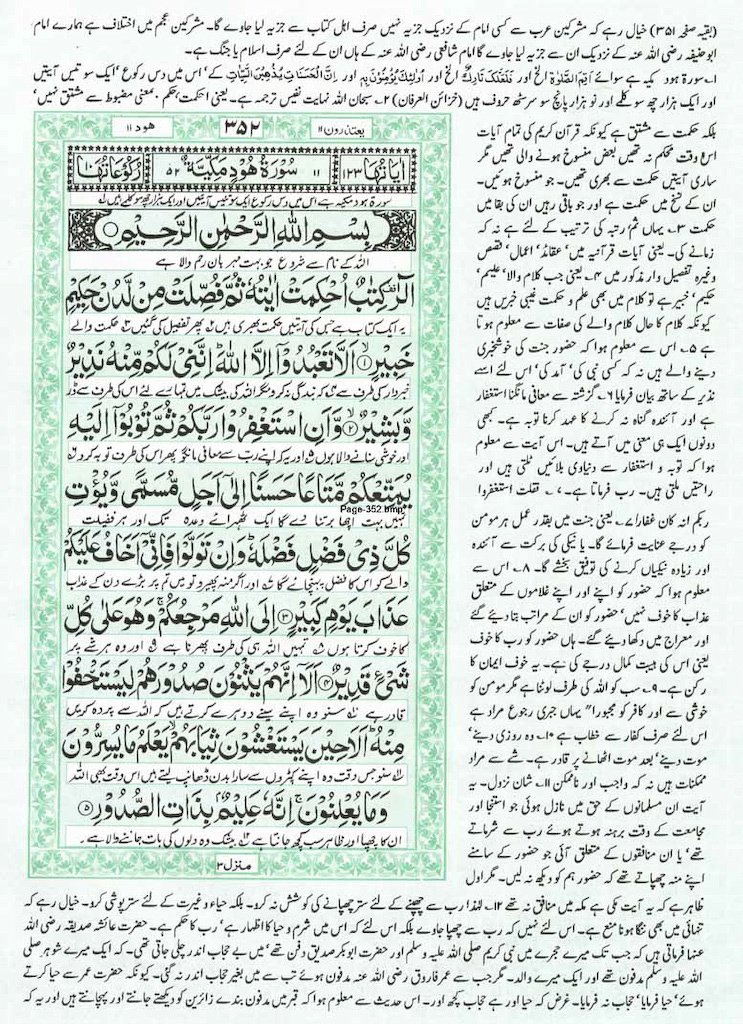 (بقیہ صفحہ ۳۵۱) خیال رہے کہ مشرکین عرب سے کسی امام کے نزدیک جزیہ نہیں صرف اہل کتاب سے جزیہ لیا جاوے گا۔ مشرکین عجم میں اختلاف ہے ہمارے امام
ابو حنیفہ رضی اللہ عنہ کے نزدیک ان سے جزیہ لیا جاوے گا امام شافعی رضی اللہ عنہ کے ہاں ان کے لئے صرف اسلام یا جنگ ہے۔
۱۔ سورۃ ہود مکیہ ہے سوائے اَقِمِ الصَّلٰوۃَ الخ اور فَلَعَلَّكَ تَارِكٌ الخ اور اُولٰٓئِكَ يُؤْمِنُوْنَ بِهٖ اور اِنَّ الْحَسَنَاتِ يُذْهِبْنَ السَّيِّاٰتِ کے' اس میں دس رکوع' ایک سو تئیس آیتیں
اور ایک ہزار چھ سو کلمے اور نو ہزار پانچ سو سرسٹھ حروف ہیں (خزائن العرفان) ۲۔ سبحان اللہ نہایت نفیس ترجمہ ہے۔ یعنی احکمت' حکم۔ بمعنی مضبوط سے مشتق نہیں'
ھود ۱۱
۳۵۲
یعتذرون ۱۱
اٰیَاتُهَا ۱۲۳
۱۱ سُوْرَةُ هُوْدٍ مَكِّيَّةٌ ۵۲
رُكُوْعَاتُهَا ۱۰
سورۃ ہود مکیہ ہے اس میں دس رکوع ایک سو تئیس آیتیں اور ایک ہزار چھ سو کلمے ہیں لہ
بِسْمِ اللّٰهِ الرَّحْمٰنِ الرَّحِيْمِ
اللہ کے نام سے شروع جو بہت مہربان رحم والا ہے
الٓرٰ كِتٰبٌ اُحْكِمَتْ اٰيٰتُهٗ ثُمَّ فُصِّلَتْ مِنْ لَّدُنْ حَكِيْمٍ
یہ ایک کتاب ہے جس کی آیتیں حکمت بھری ہیں ۲ پھر تفصیل کی گئیں ۳ حکمت والے
خَبِيْرٍ ۱ اَلَّا تَعْبُدُوْٓا اِلَّا اللّٰهَ اِنَّنِيْ لَكُمْ مِّنْهُ نَذِيْرٌ
خبردار کی طرف سے ۴ کہ بندگی نہ کرو مگر اللہ کی بیشک میں تمہارے لئے اس کی طرف سے ڈر
وَّبَشِيْرٌ ۲ وَّاَنِ اسْتَغْفِرُوْا رَبَّكُمْ ثُمَّ تُوْبُوْٓا اِلَيْهِ
اور خوشی سنانے والا ہوں ۵ اور یہ کہ اپنے رب سے معافی مانگو پھر اس کی طرف توبہ کرو ۶
يُمَتِّعْكُمْ مَّتَاعًا حَسَنًا اِلٰٓى اَجَلٍ مُّسَمًّى وَّيُؤْتِ
Page-352.bmp
تمہیں بہت اچھا برتنا دے گا ایک ٹھہرائے وعدہ تک اور ہر فضیلت
كُلَّ ذِيْ فَضْلٍ فَضْلَهٗ وَاِنْ تَوَلَّوْا فَاِنِّيْٓ اَخَافُ عَلَيْكُمْ
والے کو اس کا فضل پہنچائے گا ۷ اور اگر منہ پھیرو تو میں تم پر بڑے دن کے عذاب
عَذَابَ يَوْمٍ كَبِيْرٍ ۳ اِلَى اللّٰهِ مَرْجِعُكُمْ وَهُوَ عَلٰى كُلِّ
کا خوف کرتا ہوں ۸ تمہیں اللہ ہی کی طرف پھرنا ہے ۹ اور وہ ہر شے پر
شَيْءٍ قَدِيْرٌ ۴ اَلَآ اِنَّهُمْ يَثْنُوْنَ صُدُوْرَهُمْ لِيَسْتَخْفُوْا
قادر ہے ۱۰ سنو وہ اپنے سینے دوہرے کرتے ہیں کہ اللہ سے پردہ کریں
مِنْهُ اَلَا حِيْنَ يَسْتَغْشُوْنَ ثِيَابَهُمْ يَعْلَمُ مَا يُسِرُّوْنَ
سنو جس وقت وہ اپنے کپڑوں سے سارا بدن ڈھانپ لیتے ہیں اس وقت بھی اللہ
وَمَا يُعْلِنُوْنَ اِنَّهٗ عَلِيْمٌۢ بِذَاتِ الصُّدُوْرِ ۵
ان کا چھپا اور ظاہر سب کچھ جانتا ہے ۱۲ بیشک وہ دلوں کی بات جاننے والا ہے۔
منزل ۳
بلکہ حکمت سے مشتق ہے کیونکہ قرآن کریم کی تمام آیات
اس وقت محکم نہ تھیں بعض منسوخ ہونے والی تھیں مگر
ساری آیتیں حکمت سے بھری تھیں۔ جو منسوخ ہوئیں۔
ان کے نسخ میں حکمت ہے اور جو باقی رہیں ان کی بقا میں
حکمت ۳۔ یہاں ثم رتبہ کی ترتیب کے لئے ہے نہ کہ
زمانے کی۔ یعنی آیات قرآنیہ میں' عقائد' اعمال' قصص
وغیرہ تفصیل وار مذکور ہیں ۴۔ یعنی جب کلام والا' علیم'
حکیم' خبیر ہے تو کلام میں بھی علم و حکمت غیبی خبریں ہیں
کیونکہ کلام کا حال کلام والے کی صفات سے معلوم ہوتا
ہے ۵۔ اس سے معلوم ہوا کہ حضور جنت کی خوشخبری
دینے والے ہیں نہ کہ کسی نبی کی' آمد کی' اس لئے اسے
نذیر کے ساتھ بیان فرمایا ۶۔ گزشتہ سے معافی مانگنا استغفار
ہے اور آئندہ گناہ نہ کرنے کا عہد کرنا توبہ ہے۔ کبھی
دونوں ایک ہی معنی میں آتے ہیں۔ اس آیت سے معلوم
ہوا کہ توبہ و استغفار سے دنیاوی بلائیں ٹلتی ہیں اور
راحتیں ملتی ہیں۔ رب فرماتا ہے۔ فقلت استغفروا
ربکم انہ کان غفارا ۷۔ یعنی جنت میں بقدر عمل ہر مومن
کو درجے عنایت فرمائے گا۔ یا نیکی کی برکت سے آئندہ
اور زیادہ نیکیاں کرنے کی توفیق بخشے گا۔ ۸۔ اس سے
معلوم ہوا کہ حضور کو اپنے اور اپنے غلاموں کے متعلق
عذاب کا خوف نہیں' حضور کو ان کے مراتب بتا دیئے گئے
اور معراج میں دکھا دیئے گئے۔ ہاں حضور کو رب کا خوف
یعنی اس کی ہیبت کمال درجے کی ہے۔ یہ خوف ایمان کا
رکن ہے۔ ۹۔ سب کو اللہ کی طرف لوٹنا ہے مگر مومن کو
خوشی سے اور کافر کو مجبوراً" یہاں جبری رجوع مراد ہے
اس لئے صرف کفار سے خطاب ہے ۱۰۔ وہ روزی دینے'
موت دینے' بعد موت اٹھانے پر قادر ہے۔ شے سے مراد
ممکنات ہیں نہ کہ واجب اور ناممکن ۱۱۔ شان نزول۔ یہ
آیت ان مسلمانوں کے حق میں نازل ہوئی جو استنجا اور
مجامعت کے وقت برہنہ ہوتے ہوئے رب سے شرماتے
تھے' یا ان منافقوں کے متعلق آئی جو حضور کے سامنے
اپنے منہ چھپاتے تھے کہ حضور ہم کو دیکھ نہ لیں۔ مگر اول
ظاہر ہے کہ یہ آیت مکی ہے مکہ میں منافق نہ تھے ۱۲۔ لہٰذا رب سے چھپنے کے لئے ستر چھپانے کی کوشش نہ کرو۔ بلکہ حیاء و غیرت کے لئے ستر پوشی کرو۔ خیال رہے کہ
تنہائی میں بھی ننگا ہونا منع ہے۔ اس لئے نہیں کہ رب سے چھپا جاوے بلکہ اس لئے کہ اس میں شرم و حیا کا اظہار ہے' رب کا حکم ہے۔ حضرت عائشہ صدیقہ رضی اللہ
عنہا فرماتی ہیں کہ جب تک میرے حجرے میں نبی کریم صلی اللہ علیہ و سلم اور حضرت ابوبکر صدیق دفن تھے' میں بے حجاب اندر چلی جاتی تھی۔ کہ ایک میرے شوہر صلی
اللہ علیہ و سلم مدفون تھے اور ایک میرے والد۔ مگر جب سے عمر فاروق رضی اللہ عنہ مدفون ہوئے تب سے میں بغیر حجاب اندر نہ گئی۔ کیونکہ حضرت عمر سے حیا کرتے
ہوئے' حیا فرمایا' حجاب نہ فرمایا۔ غرض کہ حیا اور ہے حجاب کچھ اور۔ اس حدیث سے معلوم ہوا کہ قبر میں مدفون بندے زائرین کو دیکھتے جانتے اور پہچانتے ہیں اور یہ کہ